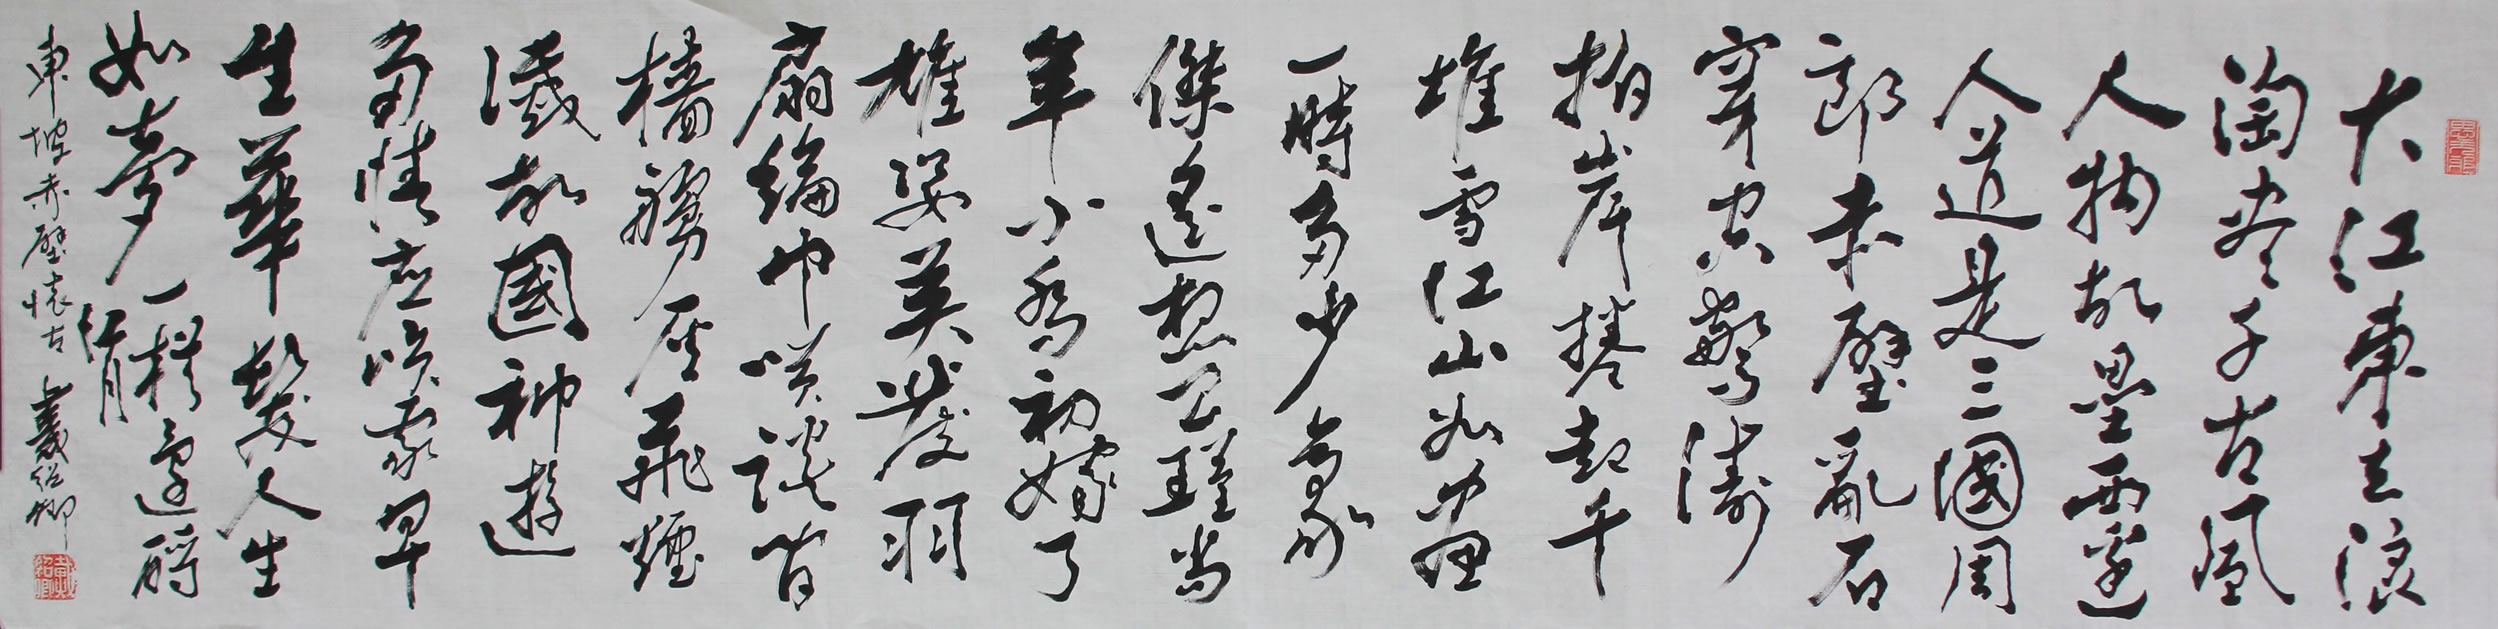 大江東去浪
淘尽千古風
人物故壘西邊
人道是三國周
郎赤壁亂石
穿空驚濤
拍岸捲起千
堆雪江山如畫
一時多少豪
傑遙想公瑾當
年小喬初嫁了
雄姿英發羽
扇綸巾咲談間
檣艣灰飛煙
滅故國神遊
多情應咲我早
生華髮人生
如夢一樽還酹
江月
東坡赤壁懷古 戴紹卿
戴紹卿